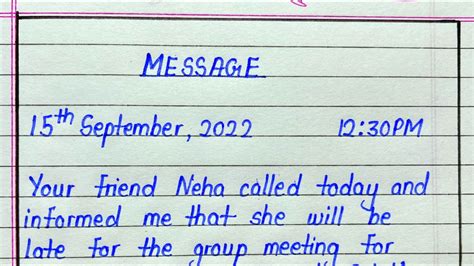 MESSAGE
15th September, 2022 12:30PM
Your friend Neha called today and
informed me that she will be
late for the group meeting for